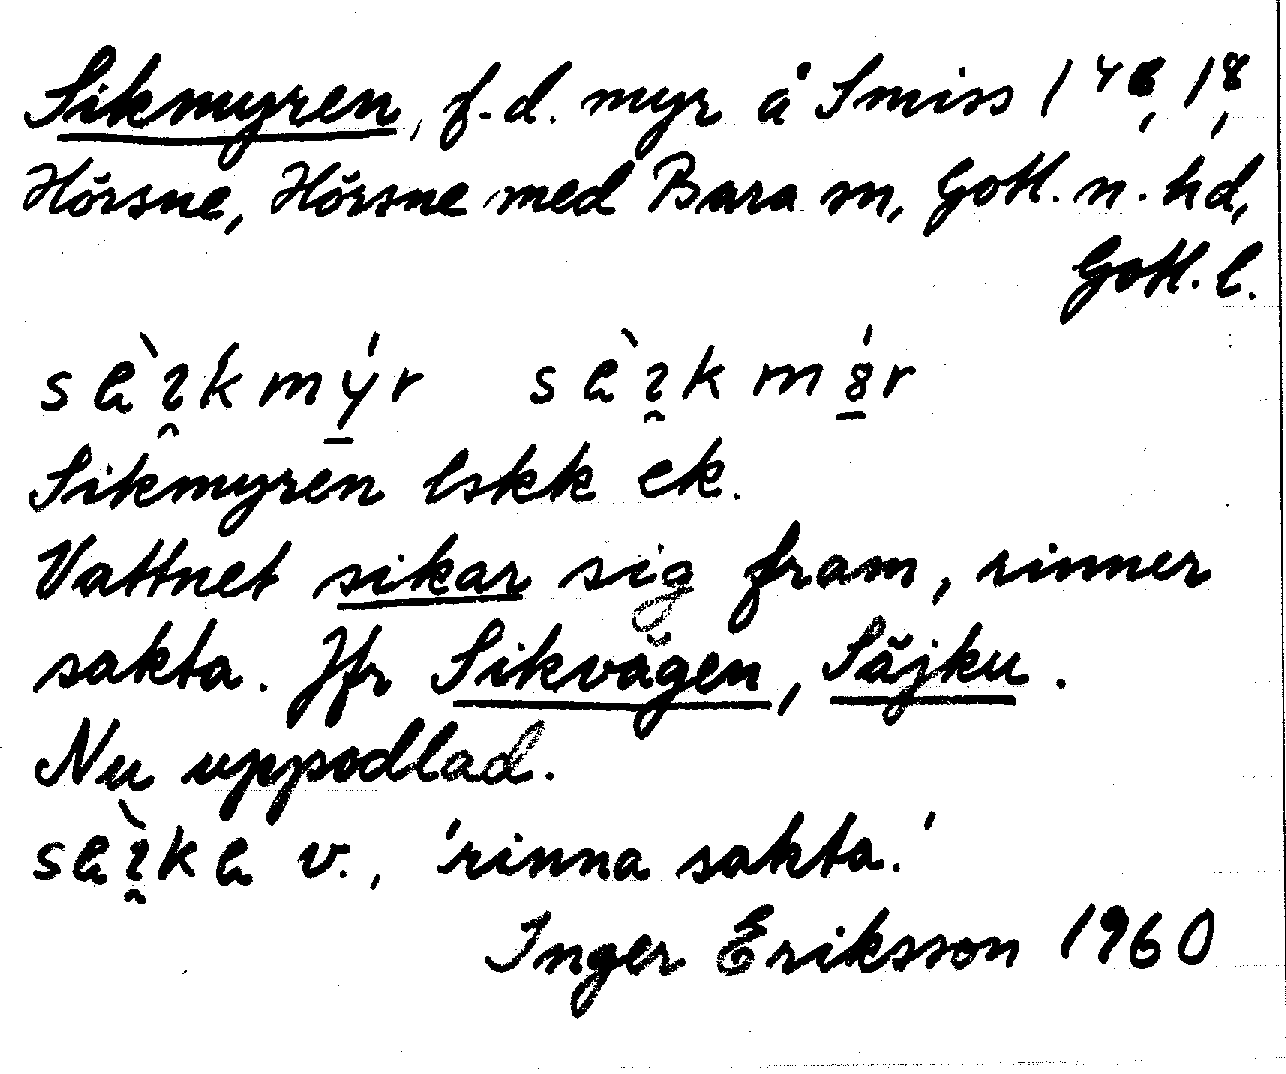 Sikmyren, f.d. myr å Smiss 1 4B, 18,
Hörsne, Hörsne med Bara sn, Gotl. n. hd,
Gotl. l.
Sikmyren lskk ek.
Vattnet sikar sig fram, rinner
sakta. Jfr Sikvägen, Säjku.
Nu uppodlad.
v., 'rinna sakta.'
Inger Eriksson 1960